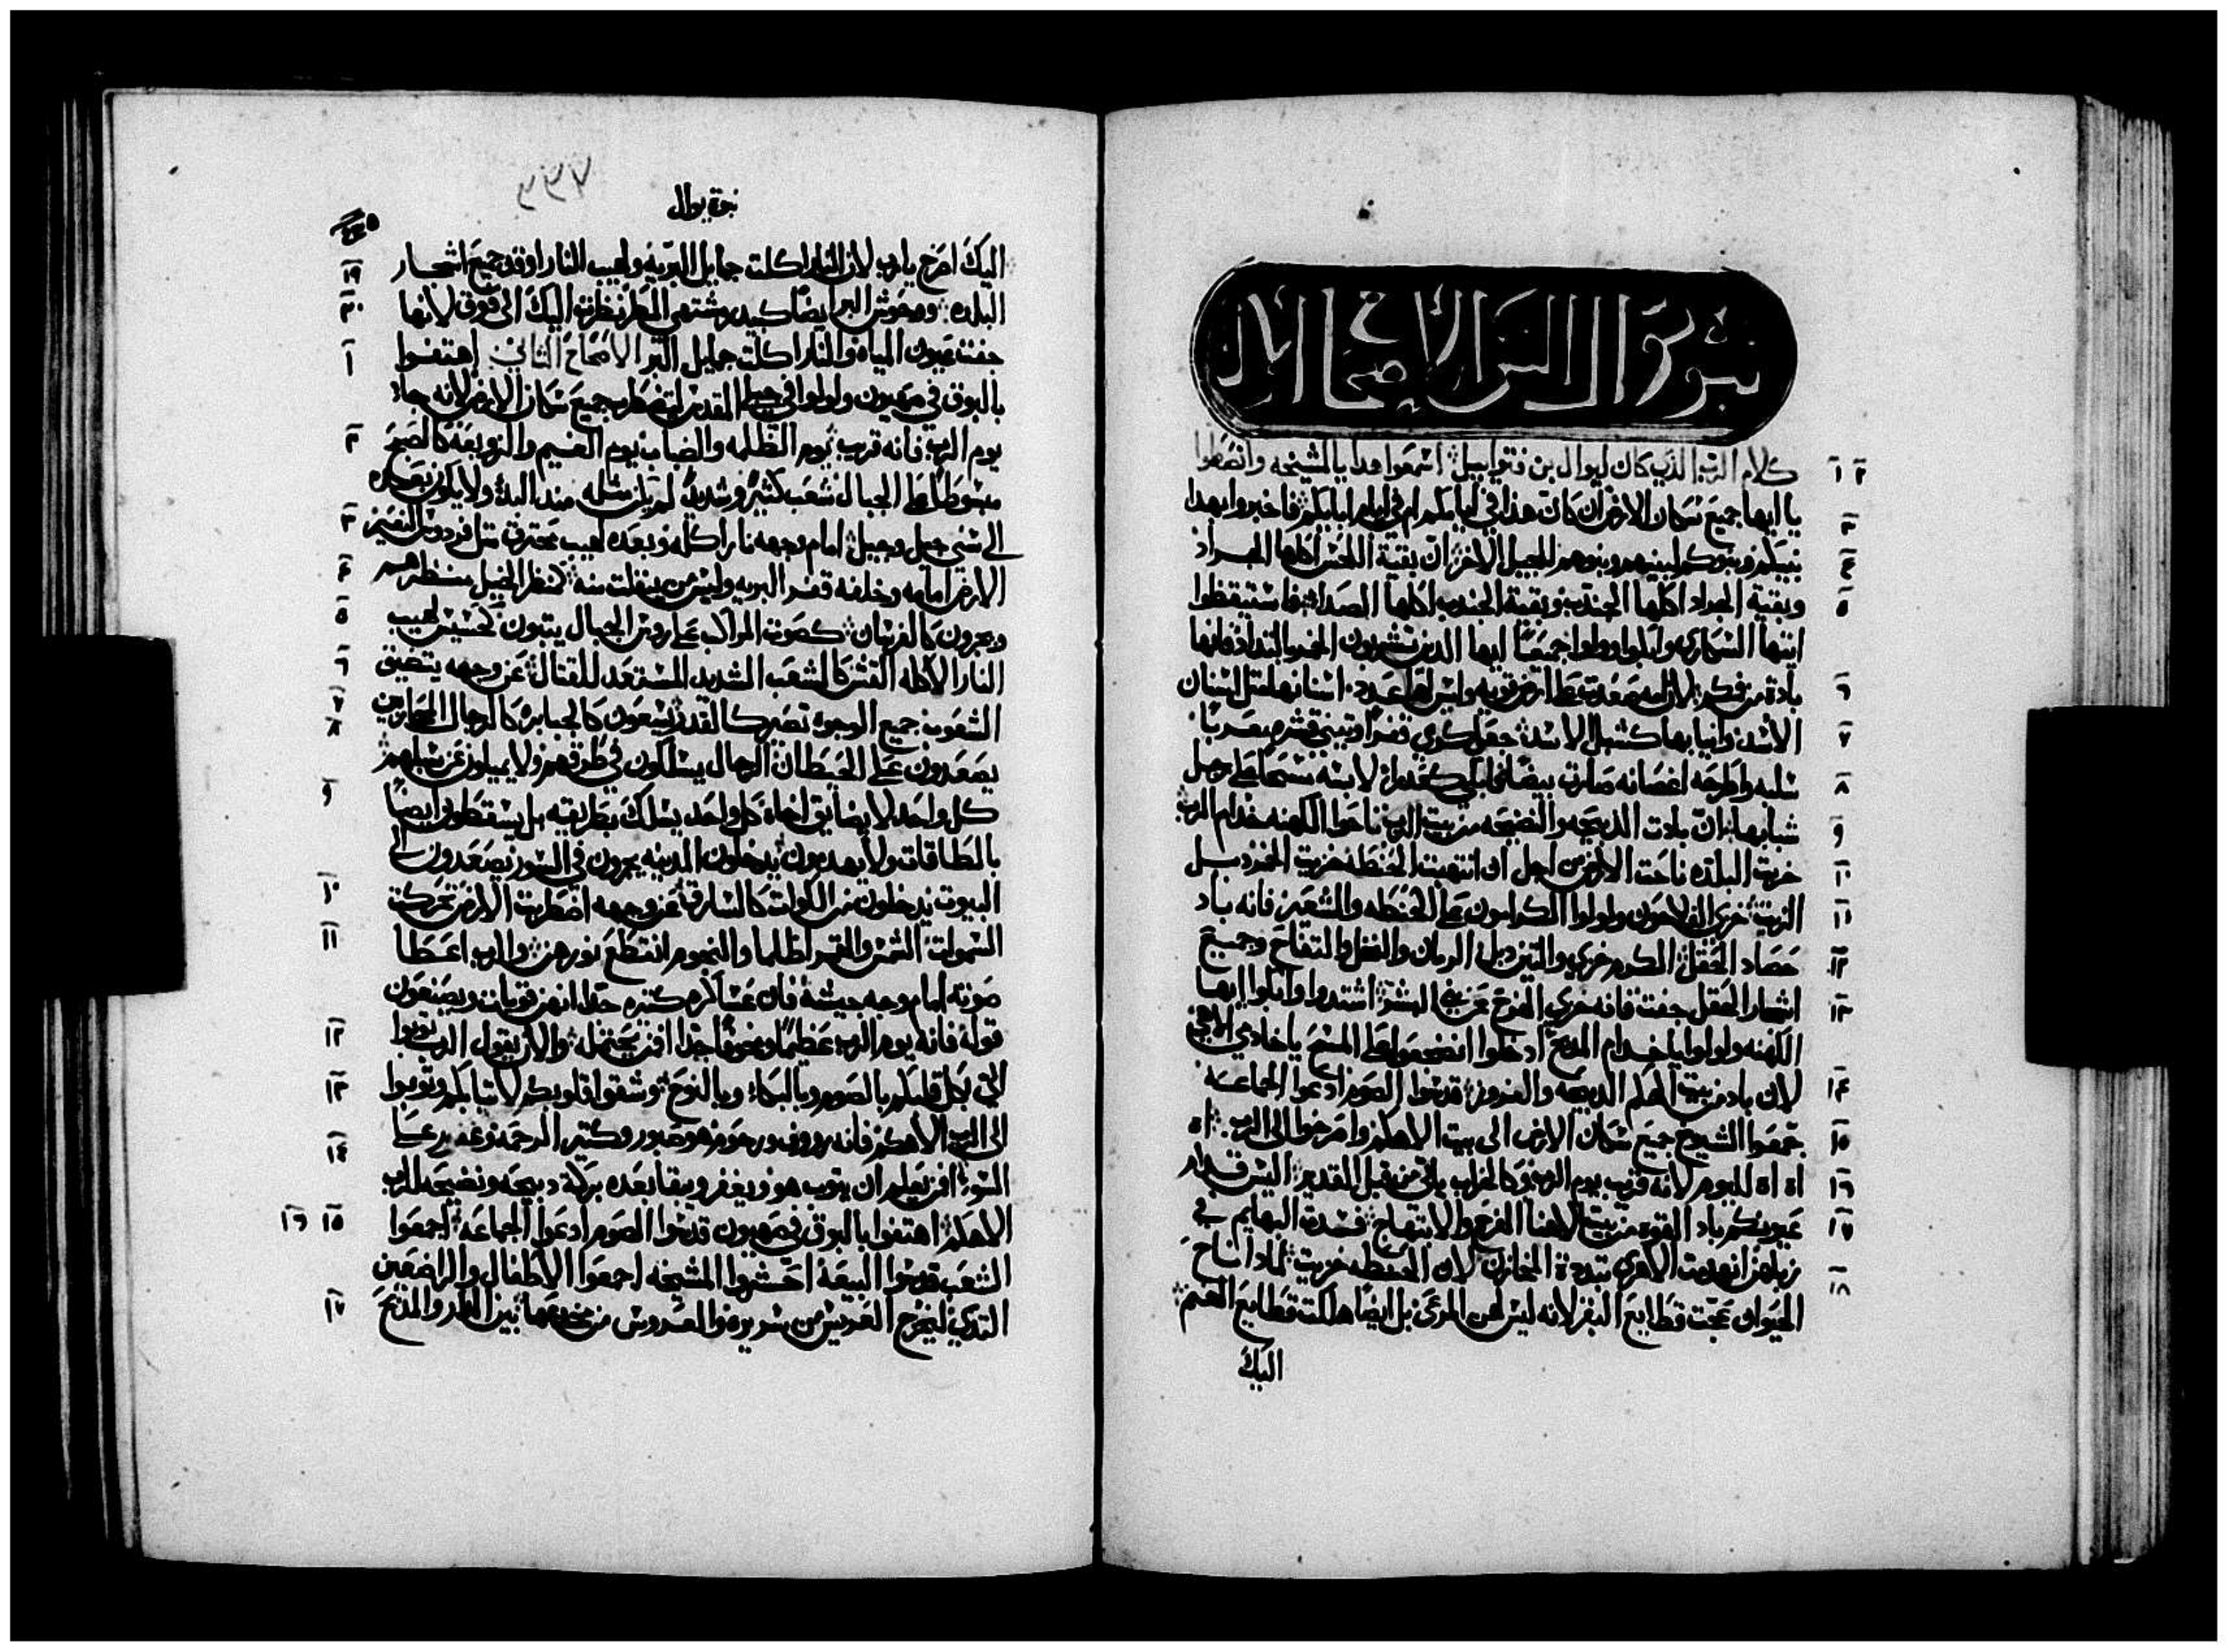 كلام الرب الذي كان ليوال بن فتواييل اسمعوا هدا يا المشيخه وانصتوا
يا ايها جميع سكان الارض ان كان هذا في ايامكم ام في ايام ابايكم فاخبروا بهدا
بنيكم وبنوكم لبنيهم وبنوهم للجيل الاخر ان بقية القمص اكلها الجراد
وبقية الجراد اكلها الجندب وبقية الجندب اكلها الصدا فاستيقظوا
ايتها السكارى وابكوا وولولوا جميعا ايها الدين تشربون الخمر بالتداد فانها
بادة من فمكم لان امه صعدت على ارضي قويه وليس لها عدد اسنانها مثل اسنان
الاسد وانيابها كشبل الاسد جعل كرمي قفرا وتيني قشره عريا
سلبه واطرحه اغصانه صارت بيضا نوحي كعدرا لابسه مسحا على رجل
شبابها ان بادت الدبيحه والنضيحه من بيت الرب ناحوا الكهنه خدام الرب
خربت البلده ناحت الارض من اجل ان انتهبت الحنطه خزيت الخمر دبل
الزيت خزي الفلاحون ولولوا الكرامون على الحنطه والشعير فانه باد
حصاد الحقل الكرم خزي والتين دبل الرمان والنخل والتفاح وجميع
اشجار الحقل جفت فانه خزي الفرح عن بني البشر اشتدوا وابكوا ايها
الكهنه ولولوا يا خدام المدبح ادخلوا انضجعوا على المسح يا خادمي الاهي
لان باد من بيت الهكم الدبيحه والمدور قدسوا الصوم ادعوا الجماعه
جمعوا الشيوخ جميع سكان الارض الى بيت الاهكم واصرخوا الى الرب اه
اه اه لليوم لانه قريب يوم الرب وكالخراب ياتي من قبل القدير اليس قدام
عيونكم باد القوت من بيت الاهنا الفرح والابتهاج فسدت البهايم في
زبلهن انهدمت الاهرى تبددة المخازن لان الحنطه خزيت لمادا ناح
الحيوان عجت قطايع البقر لانه ليس لهن المرعى بل ايضا هلكت قطايع الغنم
اليك
نبوة يوال
اليك اصرخ يارب لان النار اكلت جمايل البريه ولهيب النار اوقد جميع اشجار
البلده ووحوش البر ايضا كبيدر مشتهي المطر نظرت اليك الى فوق لانها
جفت عيون المياه والنار اكلت جمايل البر الاصحاح التاني اهتفوا
بالبوق في صهيون ولولوا في جبل القديس لتضطرب جميع سكان الارض لانه جاء
يوم الرب فانه قريب يوم الظلمه والضباب يوم الغيم والزوبعه كالصبح
مبسوطا على الجبال شعب كثير وشديد لم يكن مثله مند البدء ولا يكون بعده
الى سني جيل وجيل امام وجهه نار اكله وبعده لهيب محترق مثل فردوس النعيم
الارض امامه وخلفه قفر البريه وليس من ينفلت منه كمنظر الخيل منظرهم
ويجرون كالفرسان كصوت المراكب على روس الجبال يتبون كحسيس لهيب
النار الاكله القش كالشعب الشديد المستعد للقتال عن وجهه يتضيق
الشعوب جميع الوجوه تصير كالقدر يسعون كالجبابره كالرجال المحاربين
يصعدون على الحيطان الرجال يسلكون في طرقهم ولا يميلون عن سبلهم
كل واحد لا يضايق اخاه كل واحد يسلك بطريقه بل يسقطون ايضا
بالطاقات ولا يهدمون يدخلون المدينه يجرون في السور يصعدون الى
البيوت يدخلون من الكوات كالسارق عن وجهه اضطربت الارض تحركت
السموات الشمس والقمر اظلما والنجوم انقطع نورهن والرب اعطا
صوته امام وجه جيشه فان عساكره كتيره جدا انهن قويات ويصنعون
قوله فانه يوم الرب عظيما ومخوفا جدا افمن يحتمله والان يقول الرب توبوا
الي بكل قلبكم بالصوم وبالبكاء وبالنوح وشققوا قلوبكم لا تيابكم وتوبوا
الى الرب الاهكم فانه رووف ورحوم هو صبور وكتير الرحمه وغفير على
السوء افمن يعلم ان يتوب هو ويغفر ويبقا بعده بركة دبيحه ونضيحه للرب
الاهكم اهتفوا بالبوق في صهيون قدسوا الصوم ادعوا الجماعه اجمعوا
الشعب قدسوا البيعه احشروا المشيخه اجمعوا الاطفال والراضعين
التدي ليخرج العريس من سريره والعروس من خدرها بين الدكر والمدبح